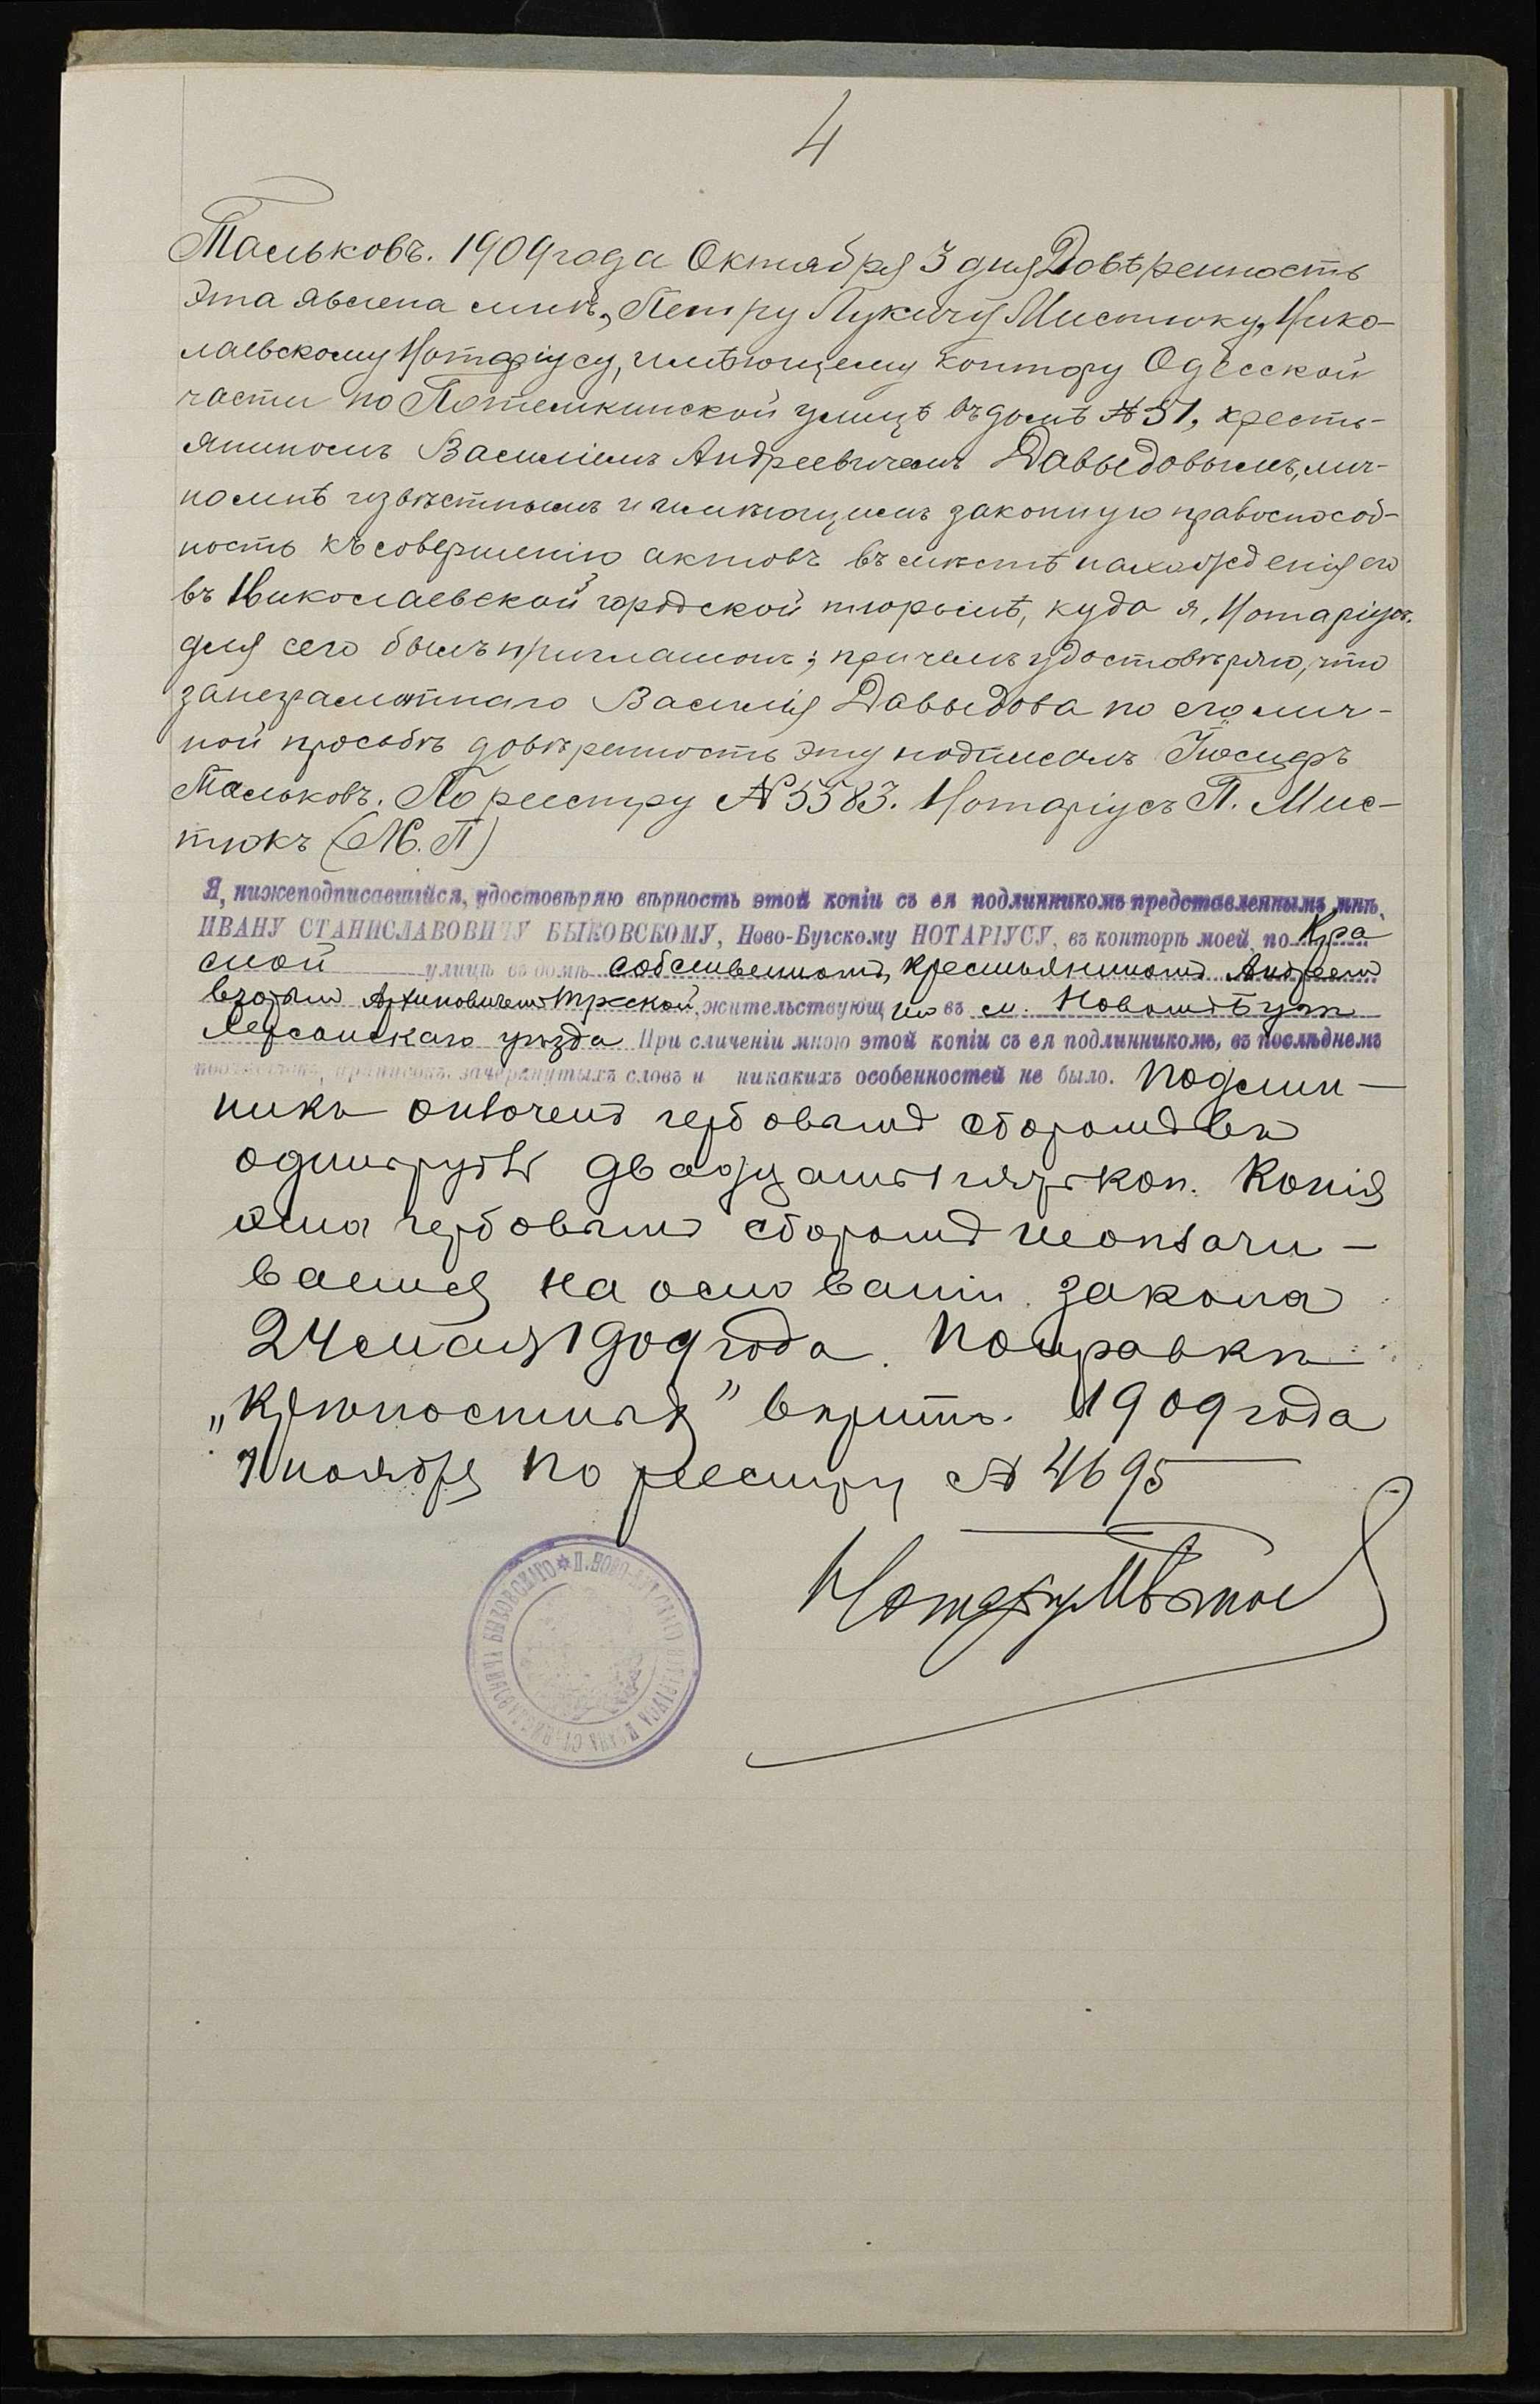 4
Тальковъ. 1909 года Октября 3 дня Довѣренность
эта явлена мнѣ, Петру Лукичу Мистюку, Нико-
лаевскому Нотаріусу, имѣющему контору Одесской
части по Потемкинской улицѣ въ домѣ № 51, кресть-
яниномъ Василіемъ Андреевичемъ Давыдовымъ, лич-
но мнѣ извѣстнымъ и имѣющимъ законную правоспособ-
ность къ совершенію актовъ въ мѣстѣ нахожденія его
въ Николаевской городской тюрьмѣ, куда я, Нотаріусъ,
для сего былъ приглашонъ; причемъ удостовѣряю, что
за неграмотнаго Василія Давыдова по его лич-
ной просьбѣ довѣренность эту подписалъ Іосифъ
Тальковъ. По реестру № 5583. Нотаріусъ П. Мис-
тюкъ (М. П)
Я, нижеподписавшійся, удостовѣряю вѣрность этой копіи съ ея подлинникомъ представленнымъ мнѣ,
ИВАНУ СТАНИСЛАВОВИЧУ БЫКОВСКОМУ, Ново-Бугскому НОТАРІУСУ, въ конторѣ моей, по Кра
сной улицѣ въ домѣ собственномъ, крестьяниномъ Андреем
Архиповичемъ жительствующ им въ м. Новомъ Бугѣ
Херсонскаго уѣзда При сличеніи мною этой копіи съ ея подлинникомъ, въ послѣднемъ
почистокъ, приписокъ, зачеркнутыхъ словъ и никакихъ особенностей не было. Подлин-
никъ оплоченъ гербовымъ сборомъ въ
одинъ руб двадцать пять коп. Копія
гербовымъ сборомъ неоплачи-
вается на основаніи закона
24 мая 1909 года. Поправки
„крѣпостныя" вѣрить. 1909 года
7 ноября по реестру № 4695
Нотаріусъ
Н. НОВО-БУГСКАГО НОТАРІУСА ИВАНА СТАНИСЛАВОВИЧА БЫКОВСКАГО